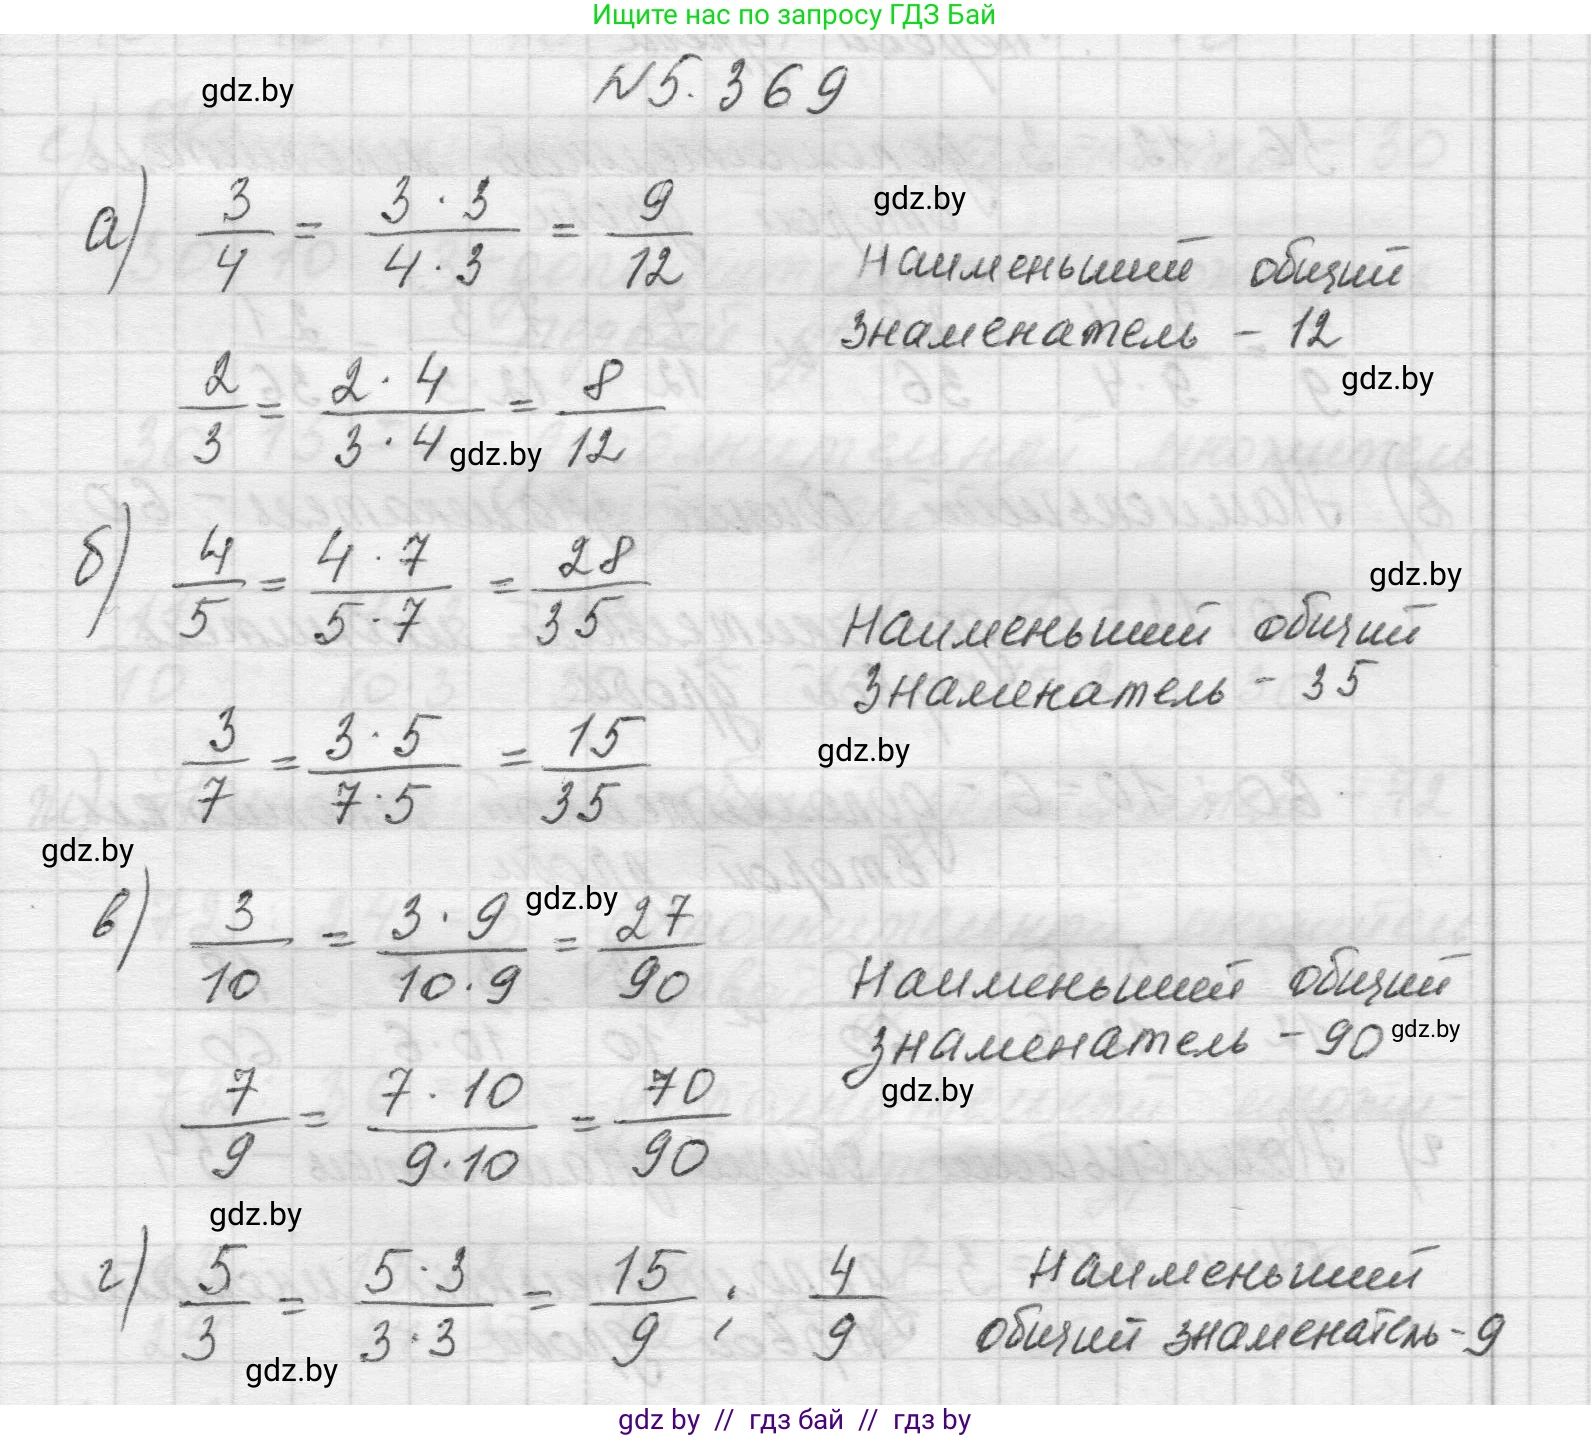 Ищите нас по запросу ГДЗ Бай
N5.369
gdz.by
а) 3/4 = 3·3/4·3 = 9/12
gdz.by
Наименьший общий
знаменатель - 12
2/3 = 2·4/3·4 = 8/12
gdz.by
gdz.by
б) 4/5 = 4·7/5·7 = 28/35
gdz.by
Наименьший общий
знаменатель - 35
3/7 = 3·5/7·5 = 15/35
gdz.by
gdz.by
в) 3/10 = 3·9/10·9 = 27/90
gdz.by
Наименьший общий
знаменатель - 90
gdz.by
gdz.by
7/9 = 7·10/9·10 = 70/90
gdz.by
г) 5/3 = 5·3/3·3 = 15/9 ; 4/9
Наименьший
общий знаменатель - 9
gdz.by
gdz by // гдз бай // гдз by